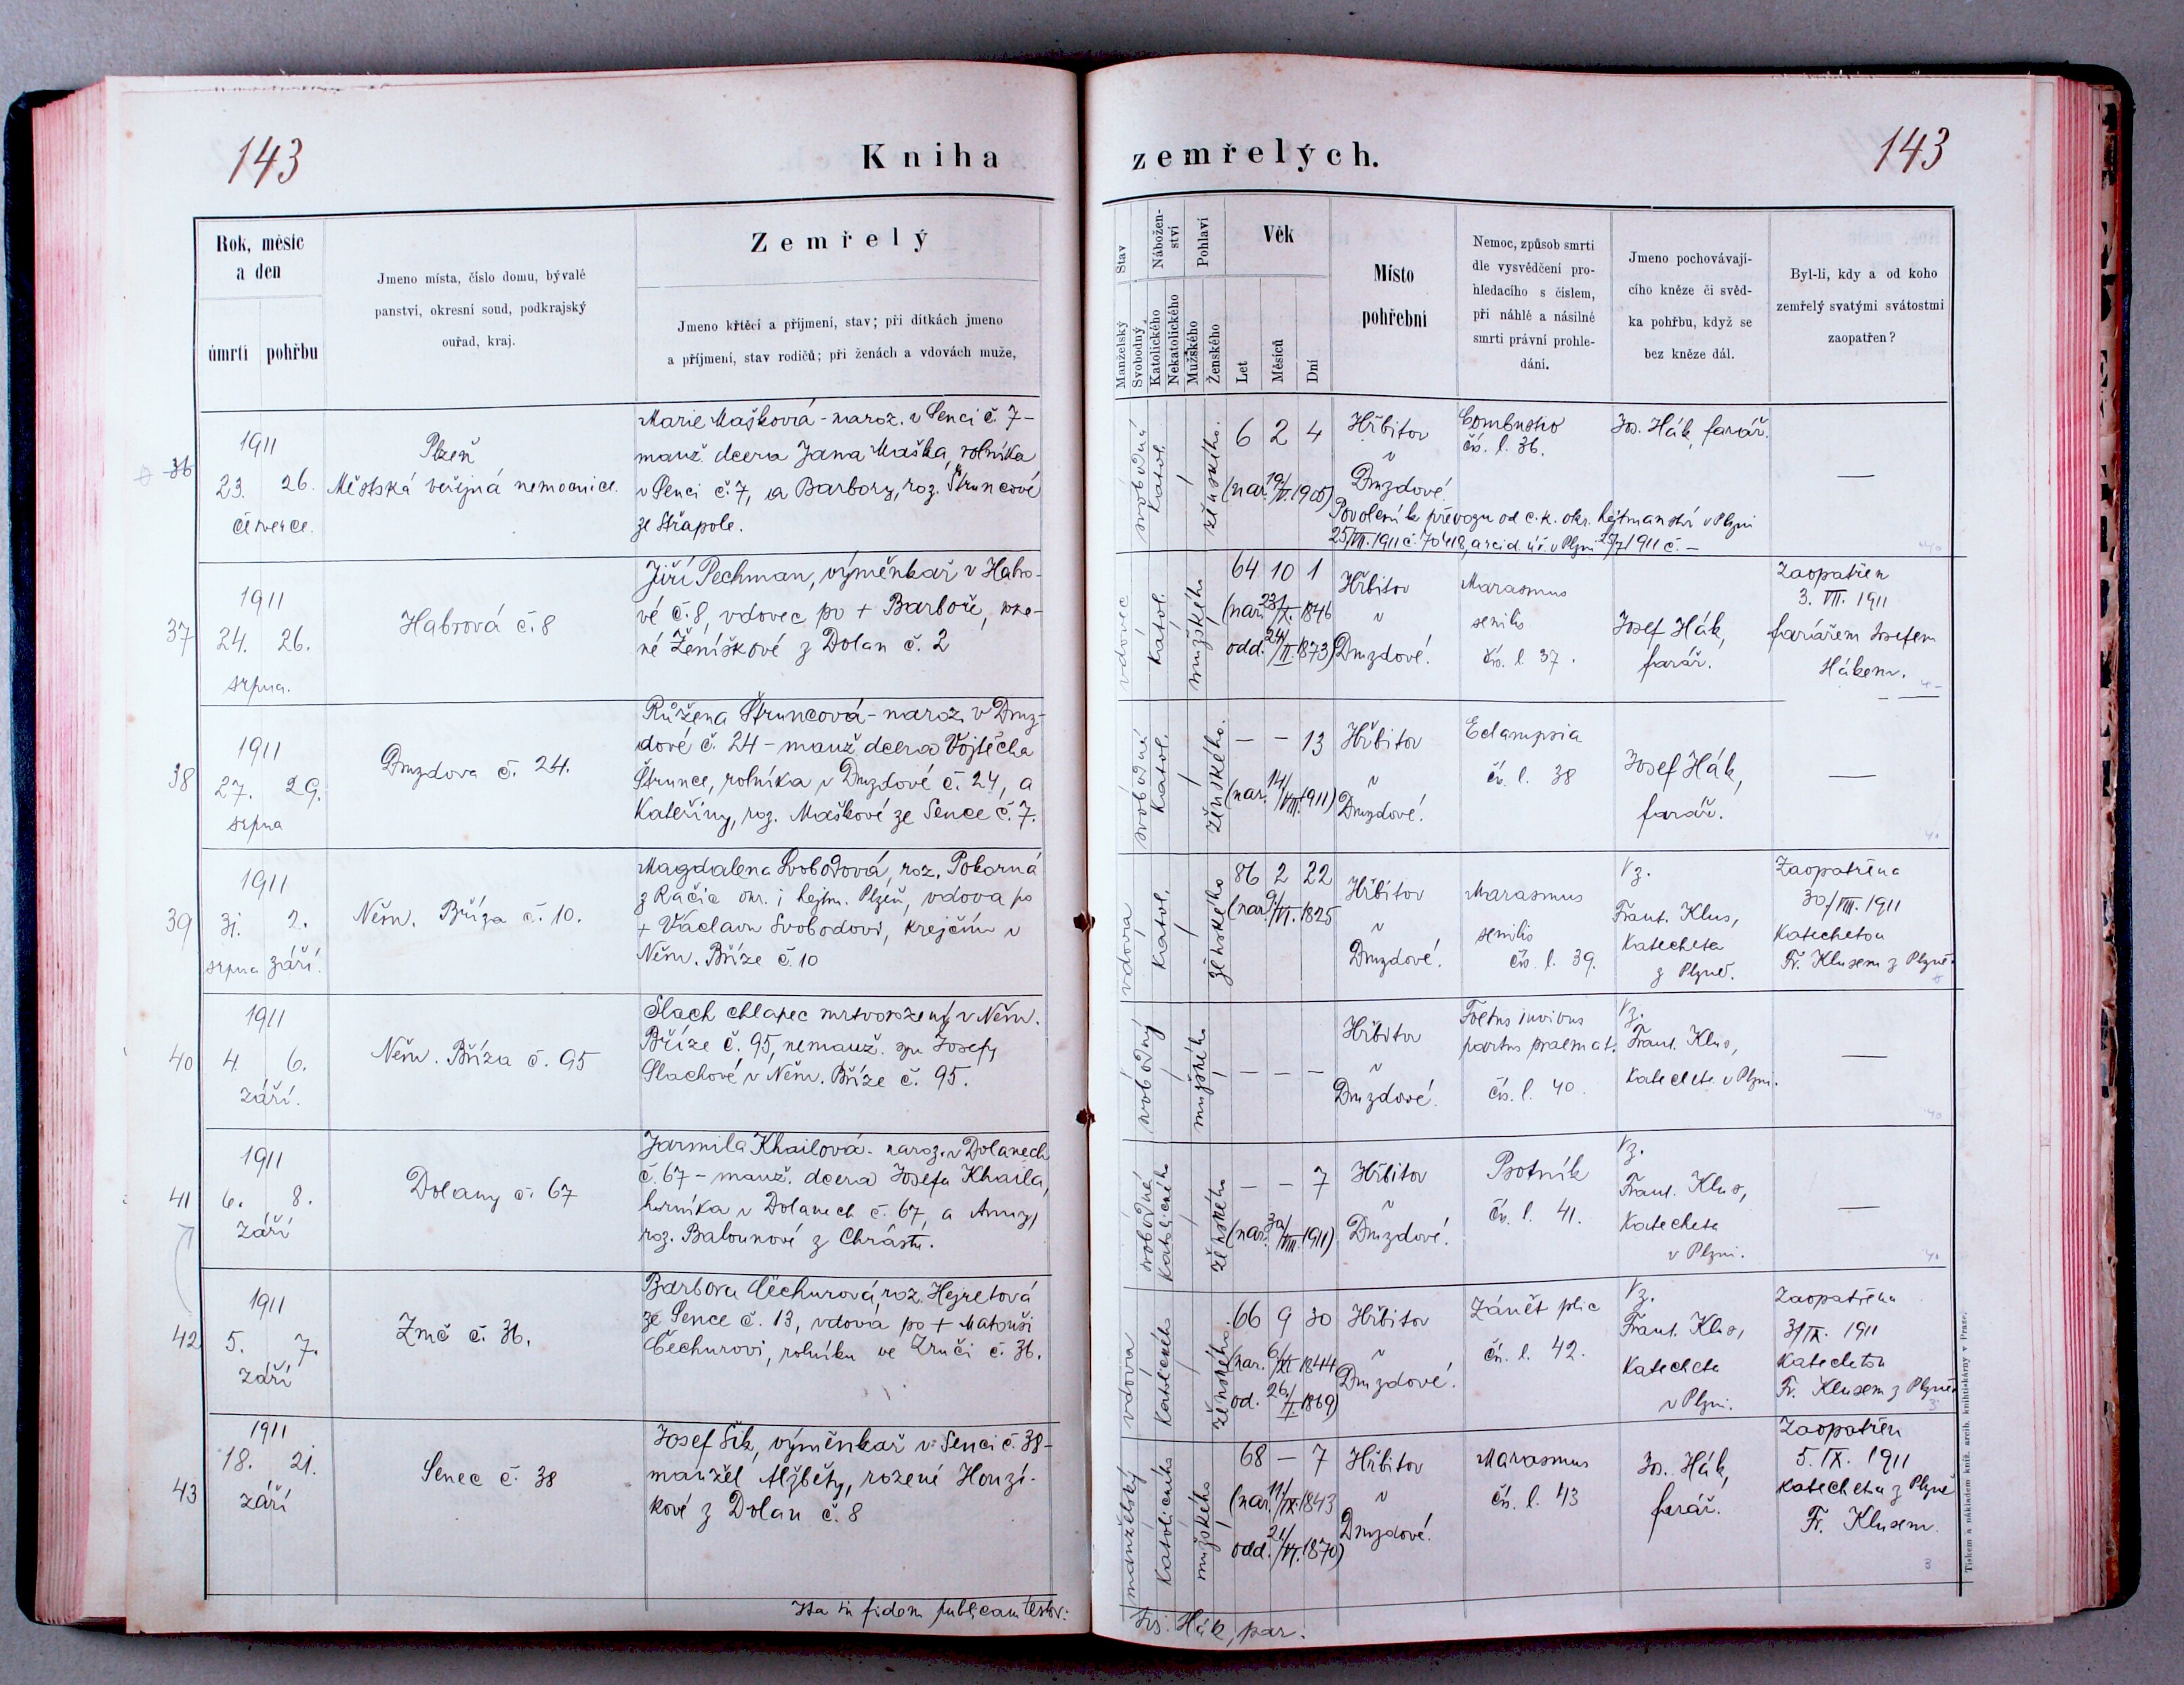 143
Kniha
zemřelých.
143
Rok, měsíc
a den
úmrtí
pohřbu
Jmeno místa, číslo domu, bývalé
panství, okresní soud, podkrajský
ouřad, kraj.
Zemřelý
Jmeno křtěcí a příjmení, stav; při dítkách jmeno
a příjmení, stav rodičů; při ženách a vdovách muže,
Stav
Manželský
Svobodný
Nábožen-
ství
Katolického
Nekatolického
Pohlaví
Mužského
Ženského
Věk
Let
Měsíců
Dní
Místo
pohřební
Nemoc, způsob smrti
dle vysvědčení pro-
hledacího s číslem,
při náhlé a násilné
smrti právní prohle-
dání.
Jmeno pochovávají-
cího kněze či svěd-
ka pohřbu, když se
bez kněze dál.
Byl-li, kdy a od koho
zemřelý svatými svátostmi
zaopatřen?
36
1911
23. 26.
července.
Plzeň
Městská veřejná nemocnice.
Marie Mašková - naroz. v Senci č. 7 -
manž. dcera Jana Maška, rolníka
v Senci č. 7, a Barbory, roz. Štruncové
ze Střapole.
svobodná
katol.
ženského.
6 2 4
(nar. 19/V. 1905)
Hřbitov
v
Druzdové.
Combustio
čís. l. 36.
Jos. Hák, farář.
—
Povolení k převozu od c. k. okr. hejtmanství v Plzni
25/VII. 1911 č. 70418, arcid. úř. v Plzni 25/7 1911 č. -
37
1911
24. 26.
srpna.
Habrová č. 8
Jiří Pechman, výměnkař v Habro-
vé č. 8, vdovec po + Barboře, roze-
né Ženíškové z Dolan č. 2
vdovec
katol.
mužského
64 10 1
(nar. 23/X. 1846
odd. 24/II. 1873)
Hřbitov
v
Druzdové.
Marasmus
senilis
čís. l. 37.
Josef Hák,
farář.
Zaopatřen
3. VII. 1911
farářem Josefem
Hákem.
38
1911
27. 29.
srpna
Druzdova č. 24.
Růžena Štruncová - naroz. v Druz-
dové č. 24 - manž. dcera Vojtěcha
Štrunce, rolníka v Druzdové č. 24, a
Kateřiny, roz. Maškové ze Sence č. 7.
svobodná
katol.
ženského.
— — 13
(nar. 14/VIII. 1911)
Hřbitov
v
Druzdové.
Eclampsia
čís. l. 38
Josef Hák,
farář.
—
39
1911
31. 2.
srpna září.
Něm. Bříza č. 10.
Magdalena Svobodová, roz. Pokorná
z Ráčic okr. i hejtm. Plzeň, vdova po
+ Václavu Svobodovi, krejčím v
Něm. Bříze č. 10
vdova
katol.
ženského
86 2 22
(nar. 9/VI. 1825
Hřbitov
v
Druzdové.
Marasmus
senilis
čís. l. 39.
Vz.
Frant. Klus,
katecheta
z Plzně.
Zaopatřena
30/VIII. 1911
katechetou
Fr. Klusem z Plzně.
40
1911
4. 6.
září.
Něm. Bříza č. 95
Slach chlapec mrtvorozený v Něm.
Bříze č. 95, nemanž. syn Josefy
Slachové v Něm. Bříze č. 95.
svobodný
mužského
— — —
Hřbitov
v
Druzdové.
Foetus invivus
partus praemat.
čís. l. 40.
Vz.
Frant. Klus,
katecheta v Plzni.
—
41
1911
6. 8.
září
Dolany č. 67
Jarmila Khailová - naroz. v Dolanech
č. 67 - manž. dcera Josefa Khaila,
horníka v Dolanech č. 67, a Anny,
roz. Balounové z Chrástu.
svobodná
katolického
ženského
— — 7
(nar. 30/VIII. 1911)
Hřbitov
v
Druzdové.
Psotník
čís. l. 41.
Vz.
Frant. Klus,
katecheta
v Plzni.
—
42
1911
5. 7.
září
Zruč č. 36.
Barbora Čechurová, roz. Hejretová
ze Sence č. 13, vdova po + Matouši
Čechurovi, rolníku ve Zruči č. 36.
vdova
katolického
ženského.
66 9 30
(nar. 6/XI 1844
od. 26/I 1869)
Hřbitov
v
Druzdové.
Zánět plic
čís. l. 42.
Vz.
Frant. Klus,
katecheta
v Plzni.
Zaopatřena
3/IX. 1911
katechetou
Fr. Klusem z Plzně.
43
1911
18. 21.
září
Senec č. 38
Josef Šik, výměnkař v Senci č. 38 -
manžel Alžběty, rozené Honzí-
kové z Dolan č. 8
manželský
katolického
mužského
68 — 7
(nar. 11/IX. 1843
odd. 21/VI. 1870)
Hřbitov
v
Druzdové.
Marasmus
čís. l. 43
Jos. Hák,
farář.
Zaopatřen
5. IX. 1911
katechetou z Plzně
Fr. Klusem.
Ita in fidem publicam testor:
Jos. Hák, par.
Tiskem a nákladem kníž. arcib. knihtiskárny v Praze.